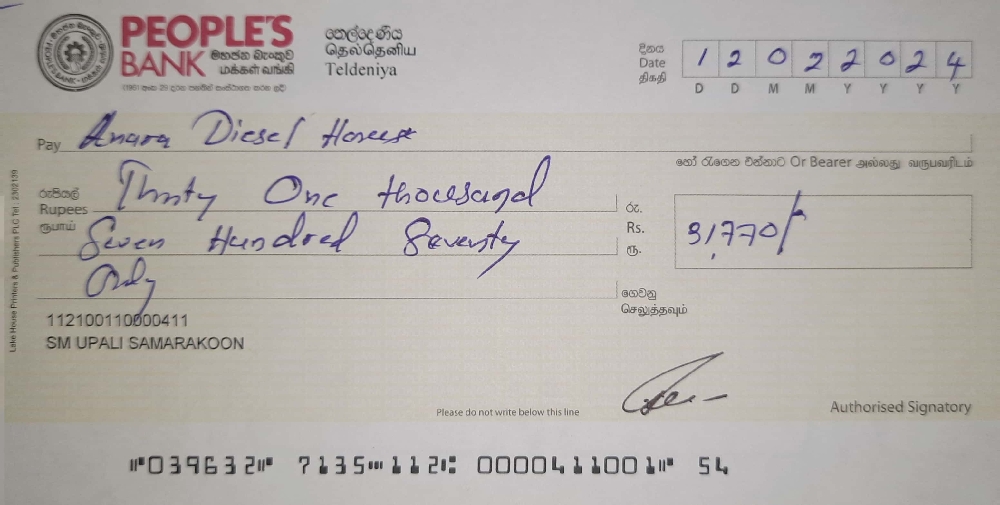 PEOPLE'S
BANK
මහජන බැංකුව
மக்கள் வங்கி
තෙල්දෙණිය
தெல்தெனிய
Teldeniya
දිනය
Date
திகதி
1 2 0 2 2 0 2 4
D D M M Y Y Y Y
Pay Anara Diesel House
හෝ රැගෙන එන්නාට Or Bearer அல்லது வருபவரிடம்
රුපියල්
Rupees
ரூபாய்
Thirty One thousand
Seven Hundred Seventy
Only
රු.
Rs.
ரூ.
31,770/-
ගෙවනු
செலுத்தவும்
112100110000411
SM UPALI SAMARAKOON
Please do not write below this line
Authorised Signatory
Lake House Printers & Publishers PLC Tel : 2302139
⑈039632⑈ 7135⑉112⑆ 0000411001⑈ 54